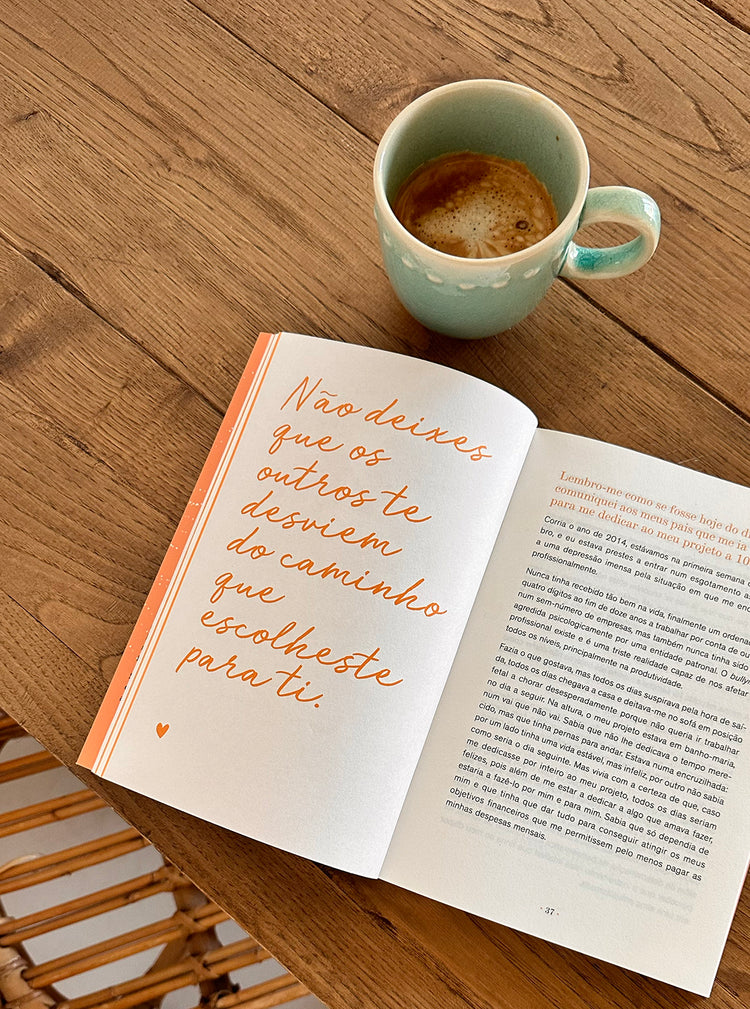 Não deixes
que os
outros te
desviem
do caminho
que
escolheste
para ti.
Lembro-me como se fosse hoje do
comuniquei aos meus pais que me ia
para me dedicar ao meu projeto a
Corria o ano de 2014, estávamos na primeira semana
bro, e eu estava prestes a entrar num esgotamento
a uma depressão imensa pela situação em que me
profissionalmente.
Nunca tinha recebido tão bem na vida, finalmente um
quatro dígitos ao fim de doze anos a trabalhar por conta de
num sem-número de empresas, mas também nunca tinha sido
agredida psicologicamente por uma entidade patronal. O
profissional existe e é uma triste realidade capaz de nos afetar
todos os níveis, principalmente na produtividade.
Fazia o que gostava, mas todos os dias suspirava pela hora de saí-
da, todos os dias chegava a casa e deitava-me no sofá em posição
fetal a chorar desesperadamente porque não queria ir trabalhar
no dia a seguir. Na altura, o meu projeto estava em banho-maria,
num vai que não vai. Sabia que não lhe dedicava o tempo mere-
cido, mas que tinha pernas para andar. Estava numa encruzilhada:
por um lado tinha uma vida estável, mas infeliz, por outro não sabia
como seria o dia seguinte. Mas vivia com a certeza de que, caso
me dedicasse por inteiro ao meu projeto, todos os dias seriam
felizes, pois além de me estar a dedicar a algo que amava fazer,
estaria a fazê-lo por mim e para mim. Sabia que só dependia de
mim e que tinha que dar tudo para conseguir atingir os meus
objetivos financeiros que me permitissem pelo menos pagar as
minhas despesas mensais.
· 37 ·